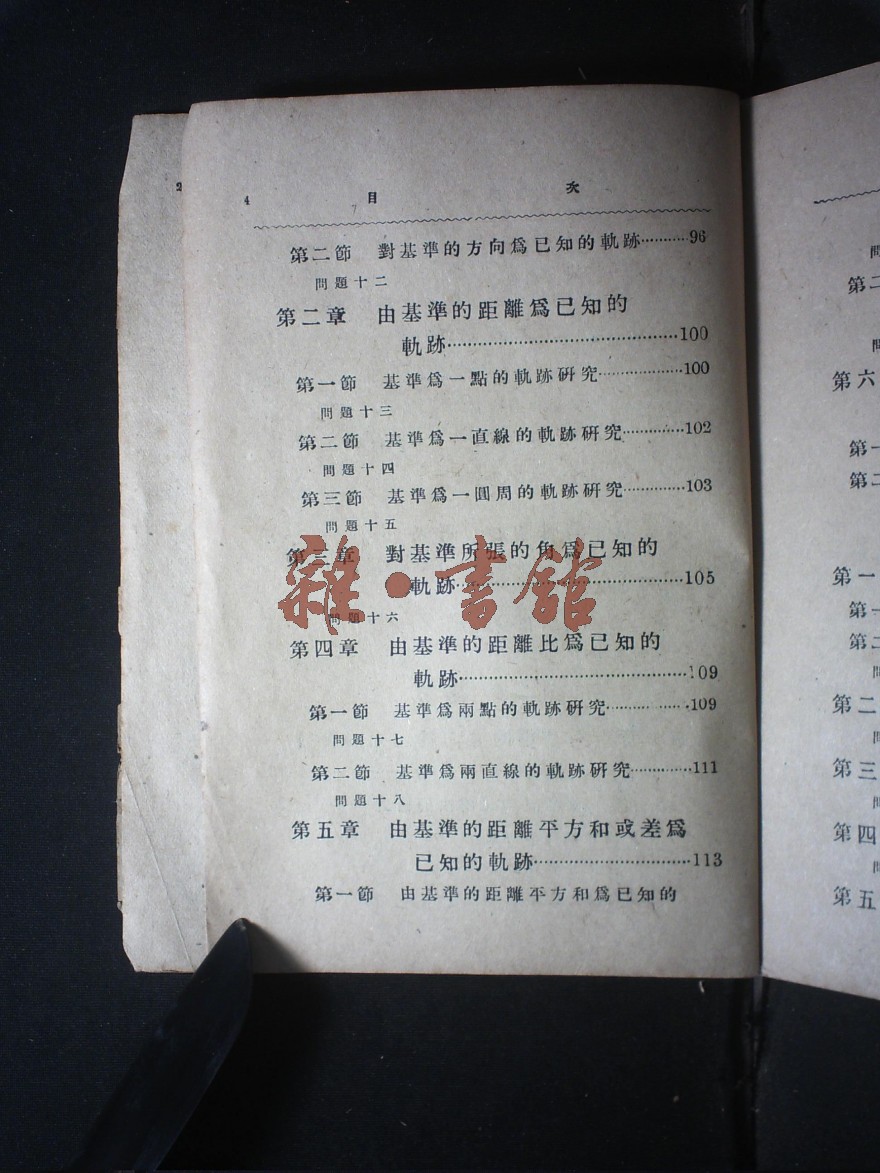 4 目 次
第二節 對基準的方向爲已知的軌跡…………96
問題十二
第二章 由基準的距離爲已知的
軌跡…………………………………100
第一節 基準爲一點的軌跡研究…………………100
問題十三
第二節 基準爲一直線的軌跡研究……………102
問題十四
第三節 基準爲一圓周的軌跡研究……………103
問題十五
第三章 對基準所張的角爲已知的
軌跡…………………………………105
問題十六
第四章 由基準的距離比爲已知的
軌跡…………………………………109
第一節 基準爲兩點的軌跡研究…………………109
問題十七
第二節 基準爲兩直線的軌跡研究……………111
問題十八
第五章 由基準的距離平方和或差爲
已知的軌跡…………………………113
第一節 由基準的距離平方和爲已知的
雜·書館
2
第二
第六
第一
第二
第一
第一
第二
第二
第三
第四
第五